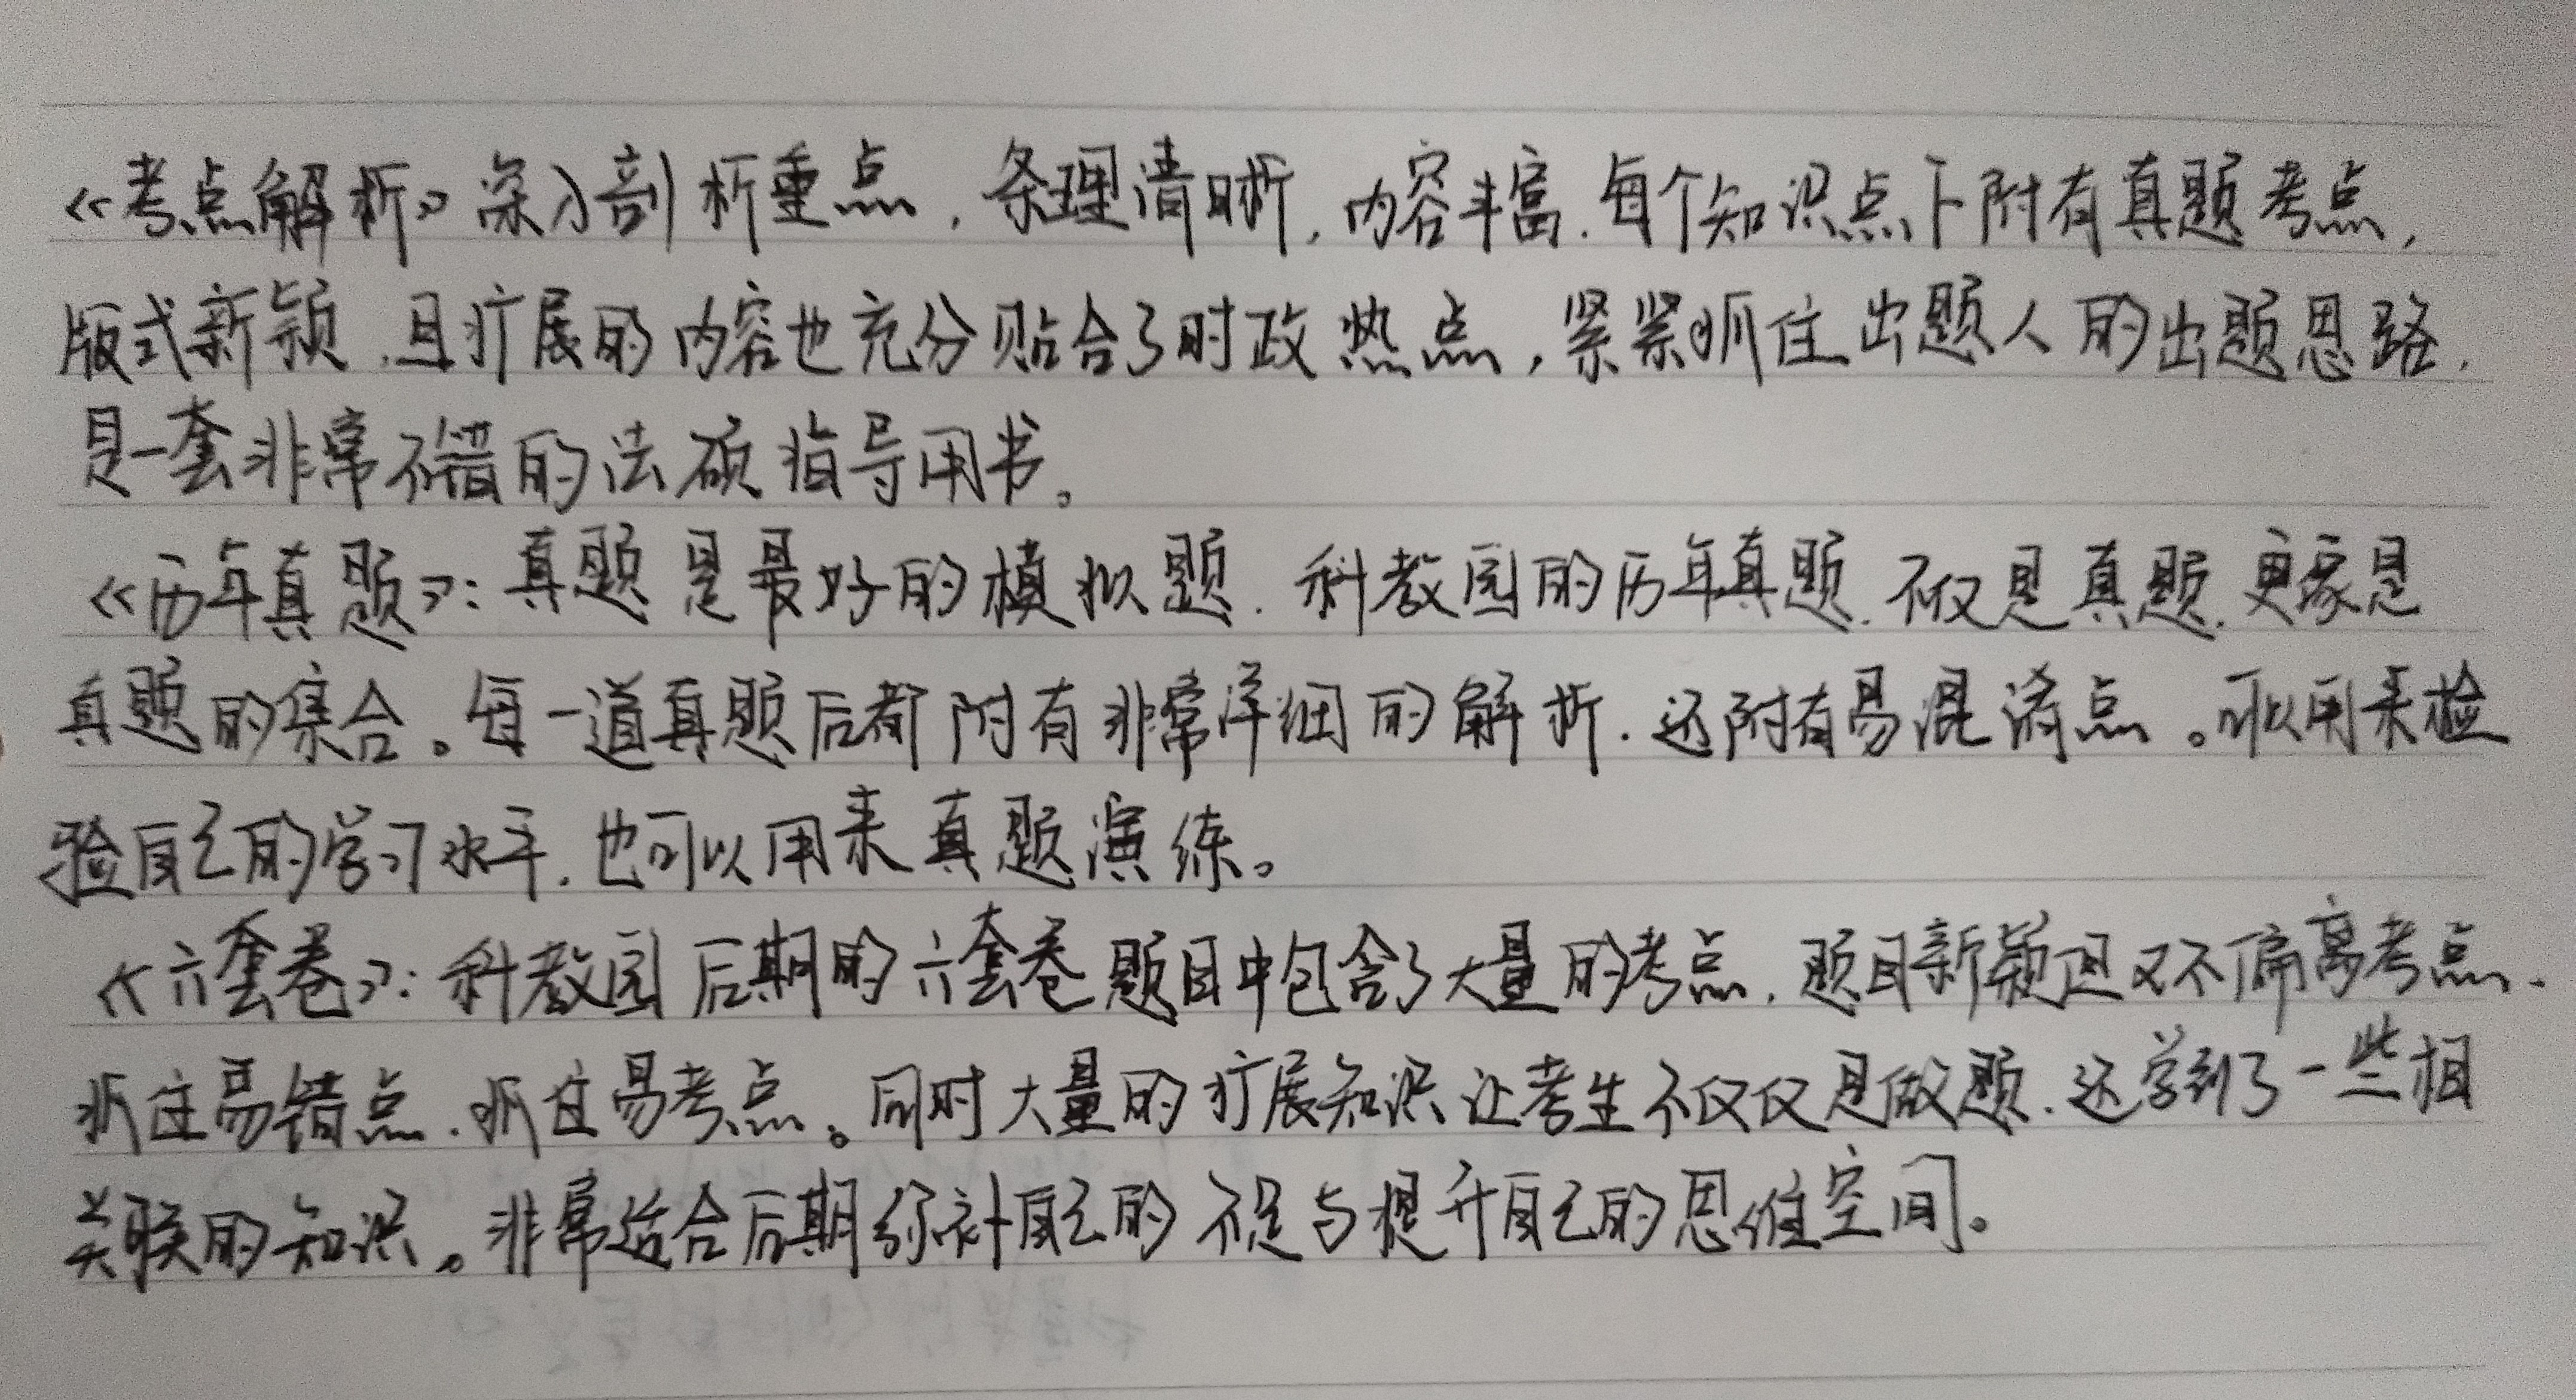 《考点解析》深入剖析重点，条理清晰，内容丰富.每个知识点下附有真题考点，
版式新颖.且扩展的内容也充分贴合了时政热点，紧紧抓住出题人的出题思路.
是一套非常不错的法硕指导用书。
《历年真题》：真题是最好的模拟题.科教园的历年真题.不仅是真题.更像是
真题的集合。每一道真题后都附有非常详细的解析.还附有易混淆点。可以用来检
验自己的学习水平.也可以用来真题演练。
《六套卷》：科教园后期的六套卷题目中包含了大量的考点.题目新颖但又不偏离考点.
抓住易错点.抓住易考点。同时大量的扩展知识让考生不仅仅是做题.还学到了一些相
关联的知识。非常适合后期弥补自己的不足与提升自己的思维空间。